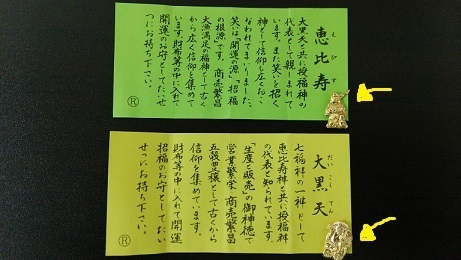 恵比寿
えびす
大黒天と共に授福神の
代表として親しまれて
います。また笑いを招く
神として信仰も広くおこ
なわれてまいりました。
笑いは「開運の源」「招福
の根源」です。商売繁昌
大漁満足の福神として古く
から広く信仰を集めて
います。財布等の中に入れて
開運のお守としてたいせ
つにお持ち下さい。
Ⓡ
大黒天
だいこくてん
七福神の一神として
恵比寿神と共に授福神
の代表と知られています。
「生産と販売」の御神徳で
営業繁栄、商売繁昌
五穀豊穣として古くから
信仰を集めています。
財布等の中に入れて開運
招福のお守としてたい
せつにお持ち下さい。
Ⓡ